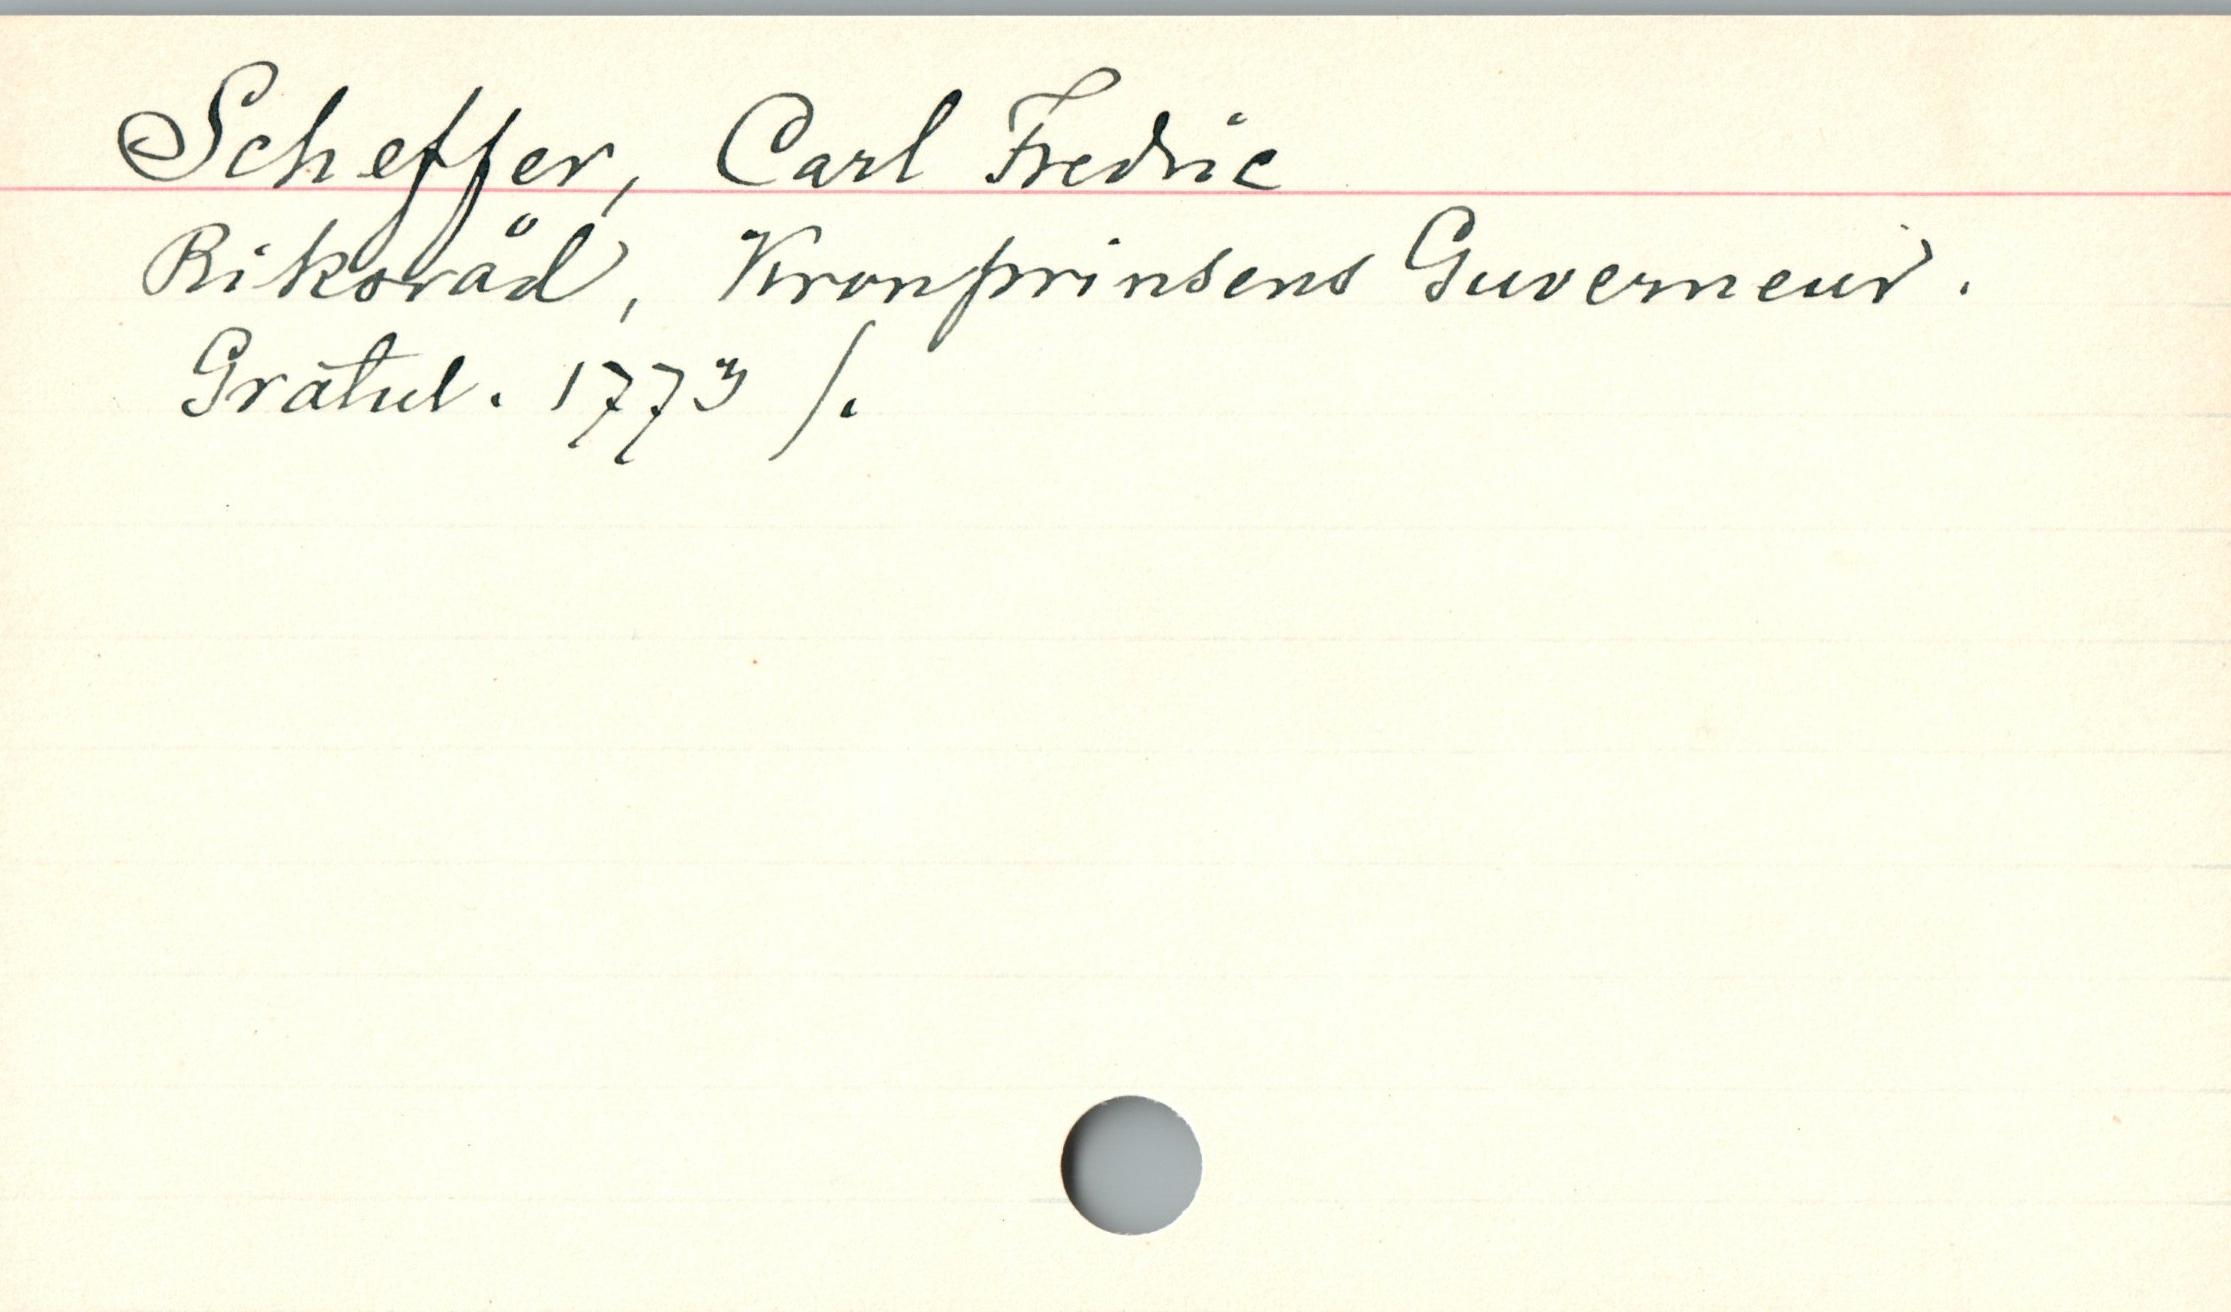 Scheffer, Carl Fredric
Riksråd, Kronprinsens Guverneur.
Gratul. 1773 /.